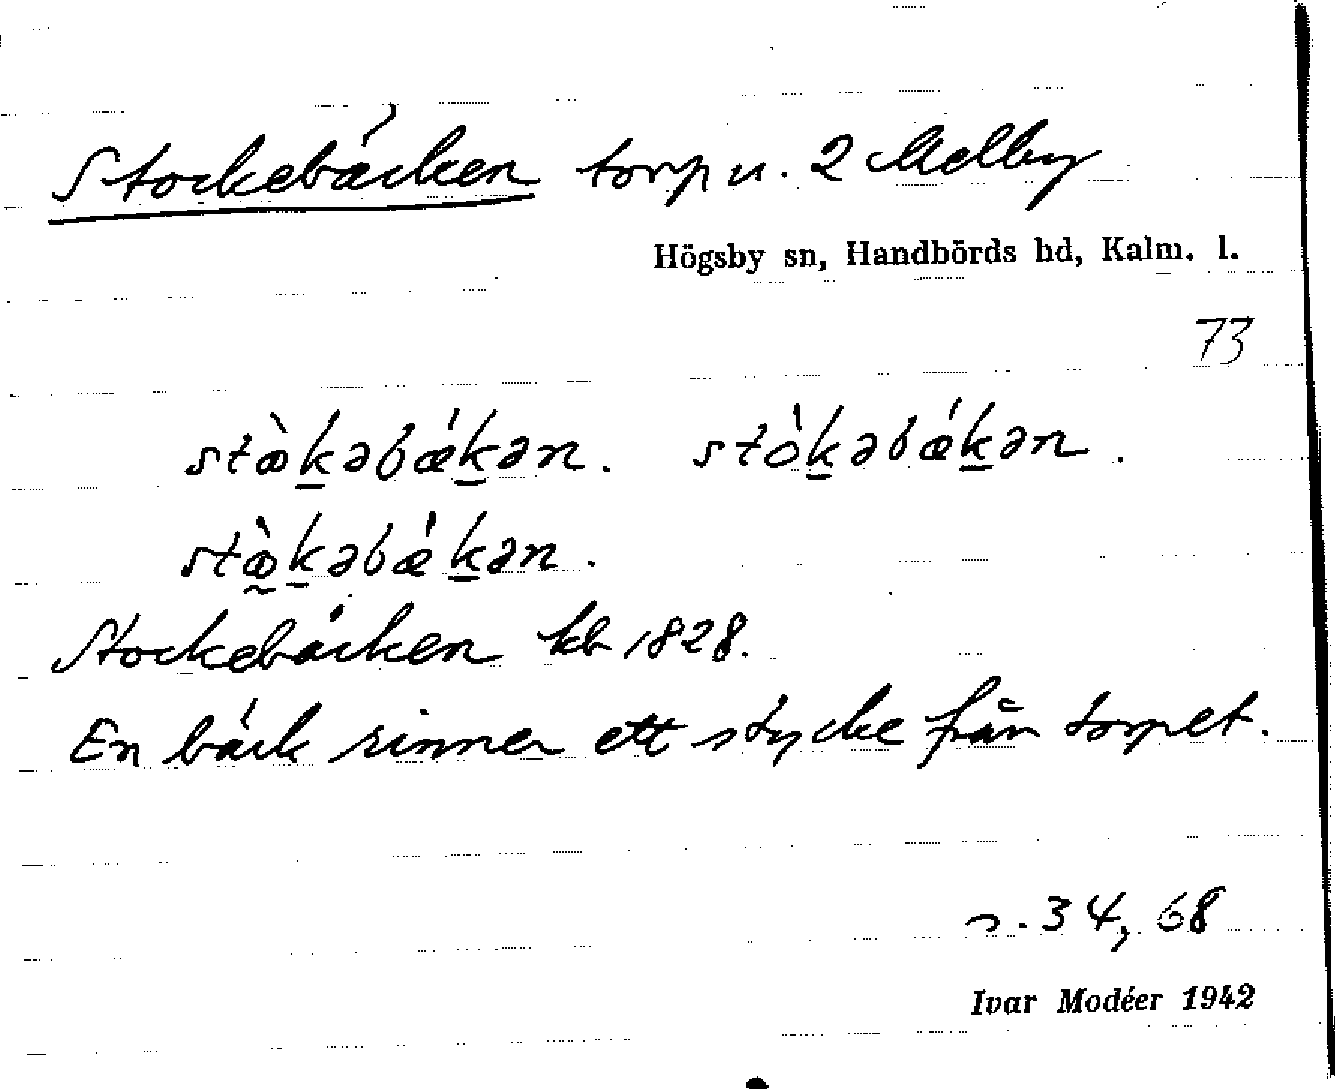 Stockebäcken torp u. 2 Melby
Högsby sn, Handbörds hd, Kalm. l.
73
stòk̲əbǽk̲ən. stòk̲əbǽk̲ən.
stœ̰̀k̲əbǽk̲ən.
Stockebäcken kb 1828.
En bäck rinner ett stycke från torpet.
s. 34, 68
Ivar Modéer 1942